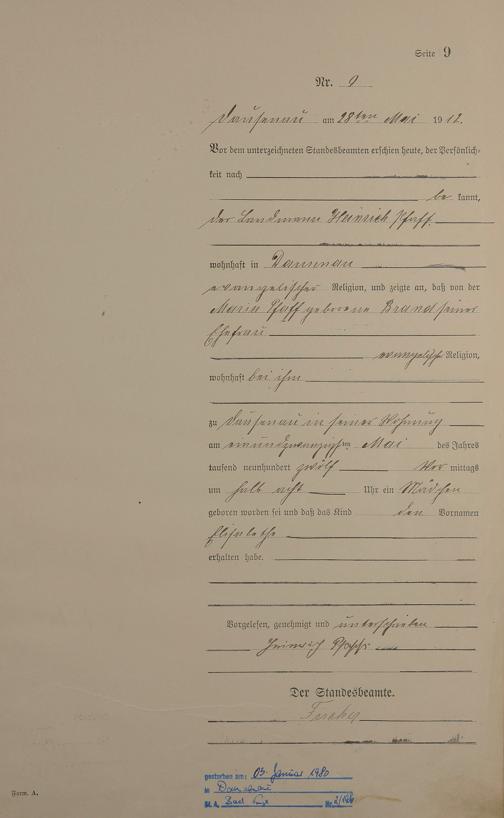 Seite 9
Nr. 9
Dausenau am 28ten Mai 1912.
Vor dem unterzeichneten Standesbeamten erschien heute, der Persönlich-
keit nach
be kannt,
der Landmann Heinrich Pfaff.
wohnhaft in Dausenau
evangelischer Religion, und zeigte an, daß von der
Maria Pfaff geborene Brand seiner
Ehefrau
evangelisch Religion,
wohnhaft bei ihm
zu Dausenau in seiner Wohnung
am einundzwanzigsten Mai des Jahres
tausend neunhundert zwölf Vor mittags
um halb acht Uhr ein Mädchen
geboren worden sei und daß das Kind den Vornamen
Elisabethe
erhalten habe.
Vorgelesen, genehmigt und unterschrieben
Heinrich Pfaff
Der Standesbeamte.
gestorben am: 03. Januar 1980
in Dausenau
St. A. Bad Nr. 2/1980
Form. A.